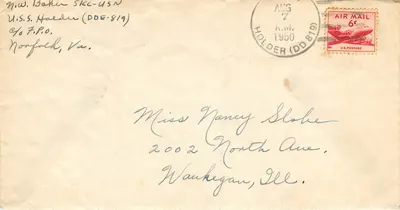 N.W. Baker SKC-USN
U.S.S. Holder (DDE-819)
c/o F.P.O.
Norfolk, Va.
AUG
7
A.M.
1950
HOLDER (DD-819)
AIR MAIL
6¢
U.S. POSTAGE
Miss Nancy Globe
2002 North Ave.
Waukegan, Ill.